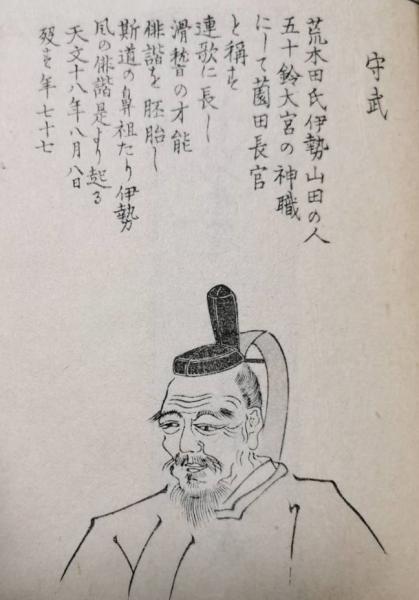 守武
荒木田氏伊勢山田の人
五十鈴大宮の神職
にして薗田長官
と稱す
連歌に長し
滑稽の才能
俳諧を胚胎し
斯道の鼻祖たり伊勢
風の俳諧是より起る
天文十八年八月八日
歿す年七十七